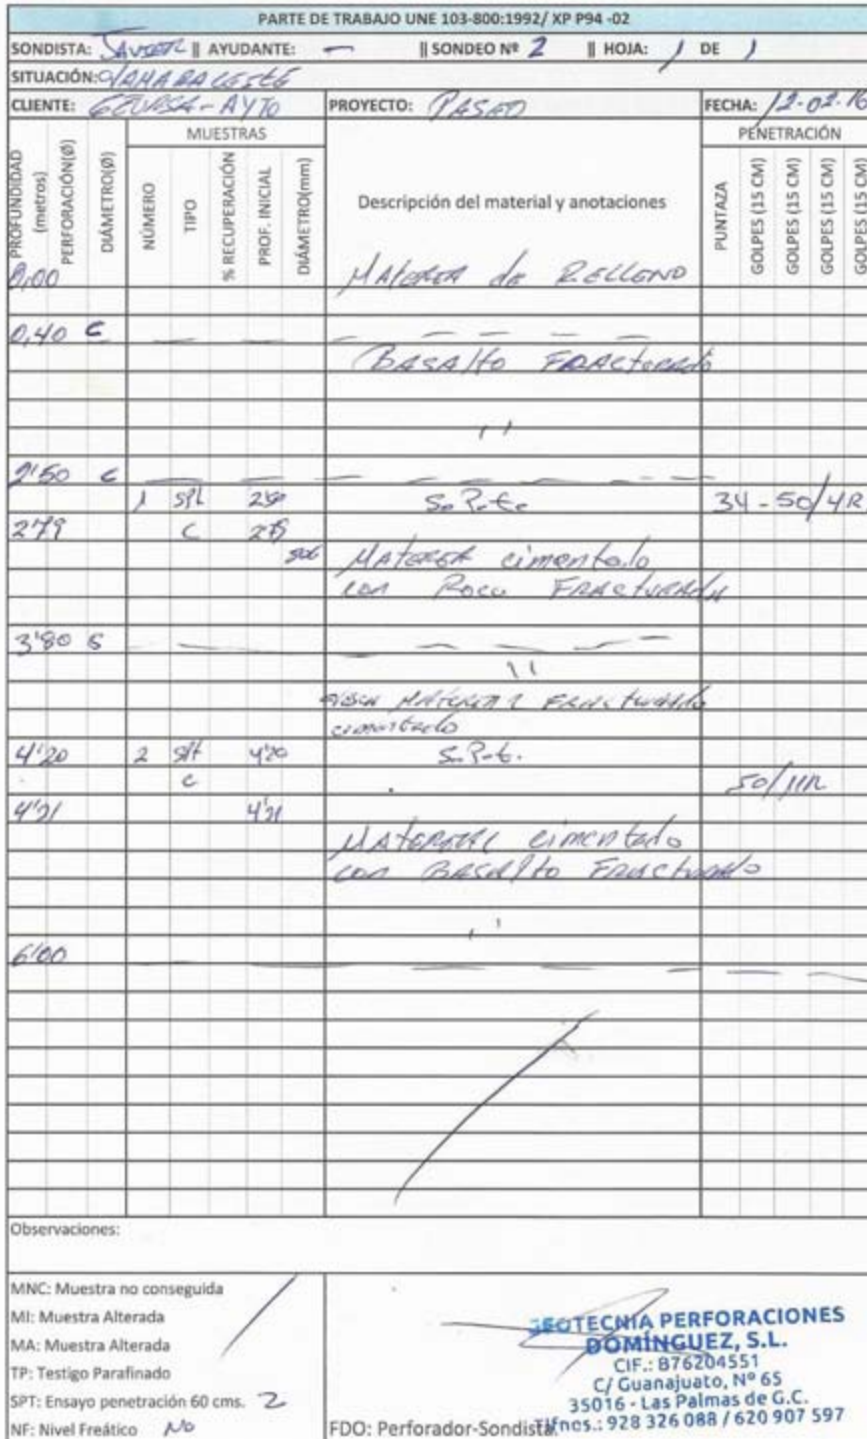 PARTE DE TRABAJO UNE 103-800:1992/ XP P94 -02
SONDISTA: JAVIER || AYUDANTE: — || SONDEO Nº 2 || HOJA: 1 DE 1
SITUACIÓN:
CLIENTE: GEURSA-AYTO PROYECTO: PASEO FECHA: 12-02-16
MUESTRAS PENETRACIÓN
PROFUNDIDAD (metros) PERFORACIÓN(Ø) DIÁMETRO(Ø) NÚMERO TIPO % RECUPERACIÓN PROF. INICIAL DIÁMETRO(mm) Descripción del material y anotaciones PUNTAZA GOLPES (15 CM) GOLPES (15 CM) GOLPES (15 CM) GOLPES (15 CM)
0,00 MATERIA de RELLENO
0,40 C
BASAlto FRACturado
''
2'50 C
1 SPt 2'50 S.P.t. 34-50/4R
2'79 C 2'79
MATERIA cimentado
con Roca FRActurada
3'80 S
''
MATERIAL FRACturado
cimentado
4'20 2 SPt 4'20 S.P.t.
C 50/11R
4'21 4'21
MATERIAL cimentado
con BASAlto FRACturado
''
6'00
Observaciones:
MNC: Muestra no conseguida
MI: Muestra Alterada
MA: Muestra Alterada
TP: Testigo Parafinado
SPT: Ensayo penetración 60 cms. 2
NF: Nivel Freático NO
FDO: Perforador-Sondista
GEOTECNIA PERFORACIONES
DOMÍNGUEZ, S.L.
CIF.: B76204551
C/ Guanajuato, Nº 65
35016 - Las Palmas de G.C.
Tlfnos.: 928 326 088 / 620 907 597